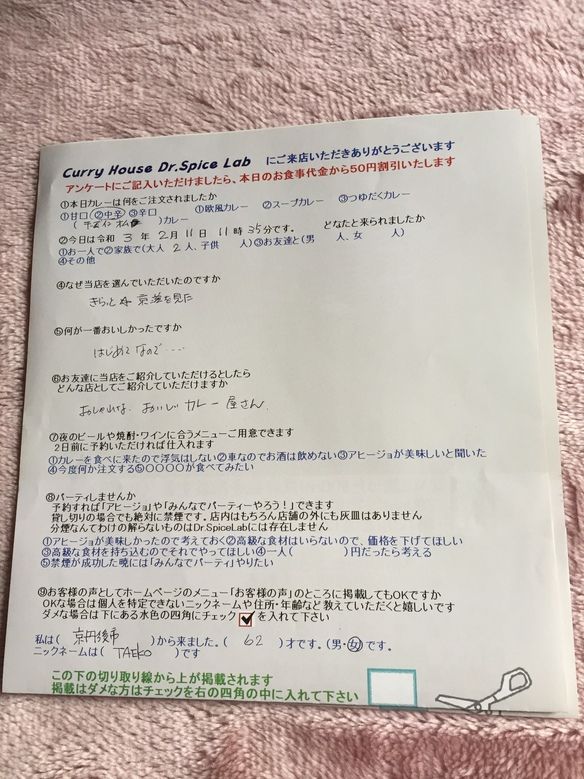 Curry House Dr.Spice Lab にご来店いただきありがとうございます
アンケートにご記入いただけましたら、本日のお食事代金から50円割引いたします
①本日カレーは何をご注文されましたか
①甘口 ②中辛 ③辛口 ①欧風カレー ②スープカレー ③つゆだくカレー
( )カレー
②今日は令和 3 年 2月 11日 11時 35分です。 どなたと来られましたか
①お一人で②家族で(大人 2人、子供 人)③お友達と(男 人、女 人)
④その他
④なぜ当店を選んでいただいたのですか
きらっと 京都を見た
⑤何が一番おいしかったですか
はじめて なので……
⑥お友達に当店をご紹介していただけるとしたら
どんな店としてご紹介していただけますか
おしゃれな おいしい カレー屋さん
⑦夜のビールや焼酎・ワインに合うメニューご用意できます
2日前に予約いただければ仕入れます
①カレーを食べに来たので浮気はしない②車なのでお酒は飲めない③アヒージョが美味しいと聞いた
④今度何か注文する⑤〇〇〇〇が食べてみたい
⑧パーティしませんか
予約すれば「アヒージョ」や「みんなでパーティーやろう!」できます
貸し切りの場合でも絶対に禁煙です。店内はもちろん店舗の外にも灰皿はありません
分煙なんてわけの解らないものはDr.SpiceLabには存在しません
①アヒージョが美味しかったので考えておく②高級な食材はいらないので、価格を下げてほしい
③高級な食材を持ち込むのでそれでやってほしい④一人( )円だったら考える
⑤禁煙が成功した暁には「みんなでパーティ」やりたい
⑨お客様の声としてホームページのメニュー「お客様の声」のところに掲載してもOKですか
OKな場合は個人を特定できないニックネームや住所・年齢など教えていただくと嬉しいです
ダメな場合は下にある水色の四角にチェック を入れて下さい
私は( 京丹後市 )から来ました。( 62 )才です。(男・女)です。
ニックネームは( TAEKO )です
この下の切り取り線から上が掲載されます
掲載はダメな方はチェックを右の四角の中に入れて下さい